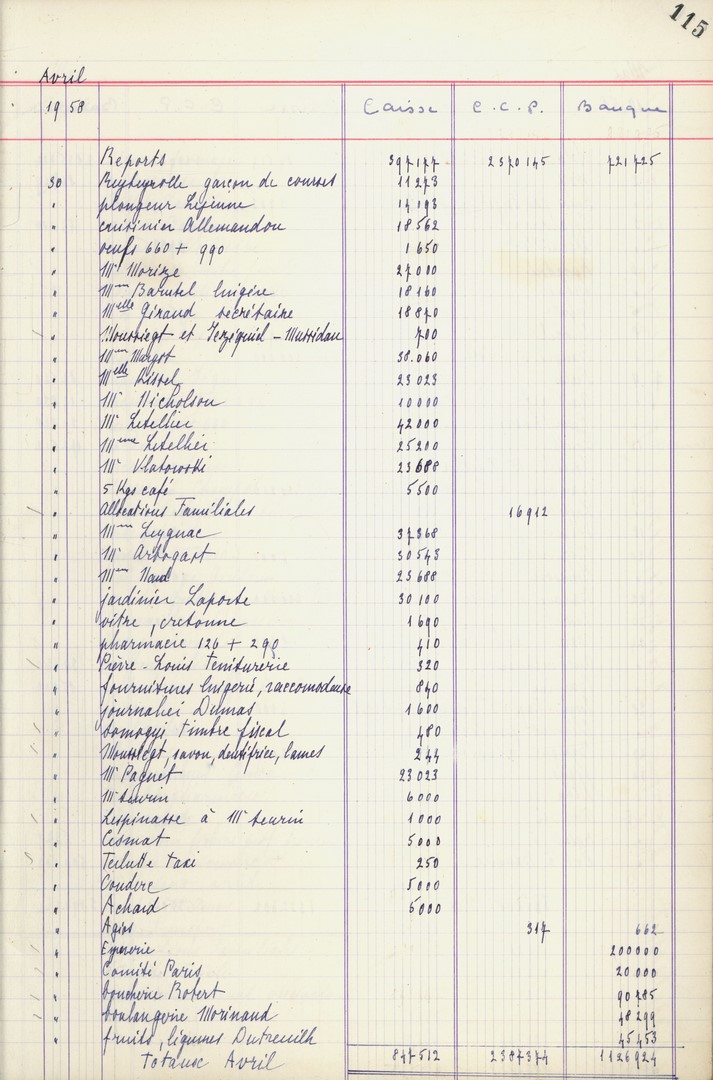 115
Avril
19 58 Caisse C.C.P. Banque
Reports 397177 2370145 721725
30 garçon de courses 11273
" plongeur Lejeune 14193
" cuisinier Allemandou 18562
" oeufs 660 + 990 1650
" Mr Morize 27000
" Mme Barutel lingère 18160
" Melle Giraud secrétaire 18870
" et - Mussidan 700
" Mme Margot 38.060
" Melle 23023
" Mr Nicholson 10000
" Mr Letellier 42000
" Mme Letellier 25200
" Mr 23688
" 5 Kgs café 5500
" Allocations Familiales 16912
" Mme Leygnac 37368
" Mr Arbogast 30543
" Mme 23688
" jardinier Laporte 30100
" vitre, cretonne 1690
" pharmacie 120 + 290 410
" Pierre-Louis Teinturerie 320
" fournitures lingerie, raccomodause 840
" journalier Dumas 1600
" timbre fiscal 480
" savon, dentifrice, lames 244
" Mr Paquet 23023
" Mr 6000
" Lespinasse à Mr 1000
" Cismat 5000
" taxi 250
" Couderc 5000
" Achard 5000
" Agios 317 662
" Epicerie 200000
" Comité Paris 20000
" boucherie Robert 90785
" boulangerie Morinaud 48299
" fruits, légumes Dutreuilh 45453
Totaux Avril 847512 2387374 1126924